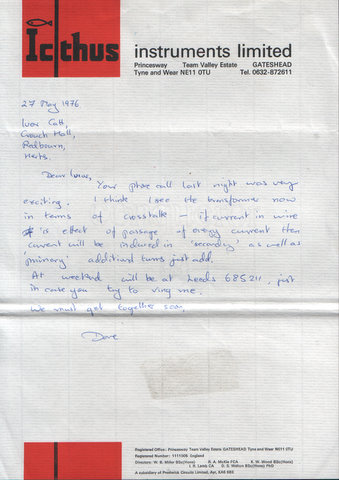 Icthus
instruments limited
Princesway Team Valley Estate GATESHEAD
Tyne and Wear NE11 0TU Tel. 0632-872611
27 May 1976
Ivor Catt,
Crouch Hall,
Redbourn,
Herts.
Dear Ivor,
Your phone call last night was very
exciting. I think I see the transformer now
in terms of crosstalk - if current in wire
is effect of passage of energy current then
current will be induced in 'secondary' as well as
'primary' additional turns just add.
At weekend will be at Leeds 685211, just
in case you try to ring me.
We must get together soon,
Dave
Registered Office: Princesway Team Valley Estate GATESHEAD Tyne and Wear NE11 0TU
Registered Number: 1111006 England
Directors: W. B. Miller BSc(Hons) R. A. McKie FCA E. W. Wood BSc(Hons)
I. R. Lamb CA D. S. Walton BSc(Hons) PhD
A subsidiary of Prestwick Circuits Limited, Ayr,